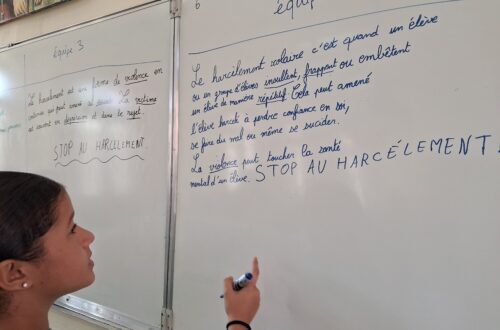 Equipe 3
Le harcèlement est une forme de violence en
La victime
est souvent en dépression et dans le rejet.
STOP AU HARCÈLEMENT.
6
équip
Le harcèlement scolaire c'est quand un élève
ou un groupe d'élèves insultent, frappent ou embêtent
un élève de manière répétitif. Cela peut amené
l'élève harcelé à perdre confiance en soi,
se faire du mal ou même se suicider.
La violence peut toucher la santé
mental d'un élève. STOP AU HARCÉLEMENT!